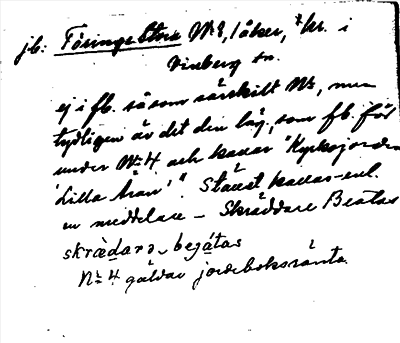 jb: Föringe Stom Nr 1, 1 åker, 7/ln. i
Vinberg sn.
ej i fb. såsom särskilt Nr, men
tydligen är det den läg, som fb. för
under Nr 4 och kallar "Kyrkojorden
'Lilla Åran'". Stället kallas enl.
en meddelare – Skräddare Beatas
skrædara begátas
Nr 4 gäldar jordeboksränta.